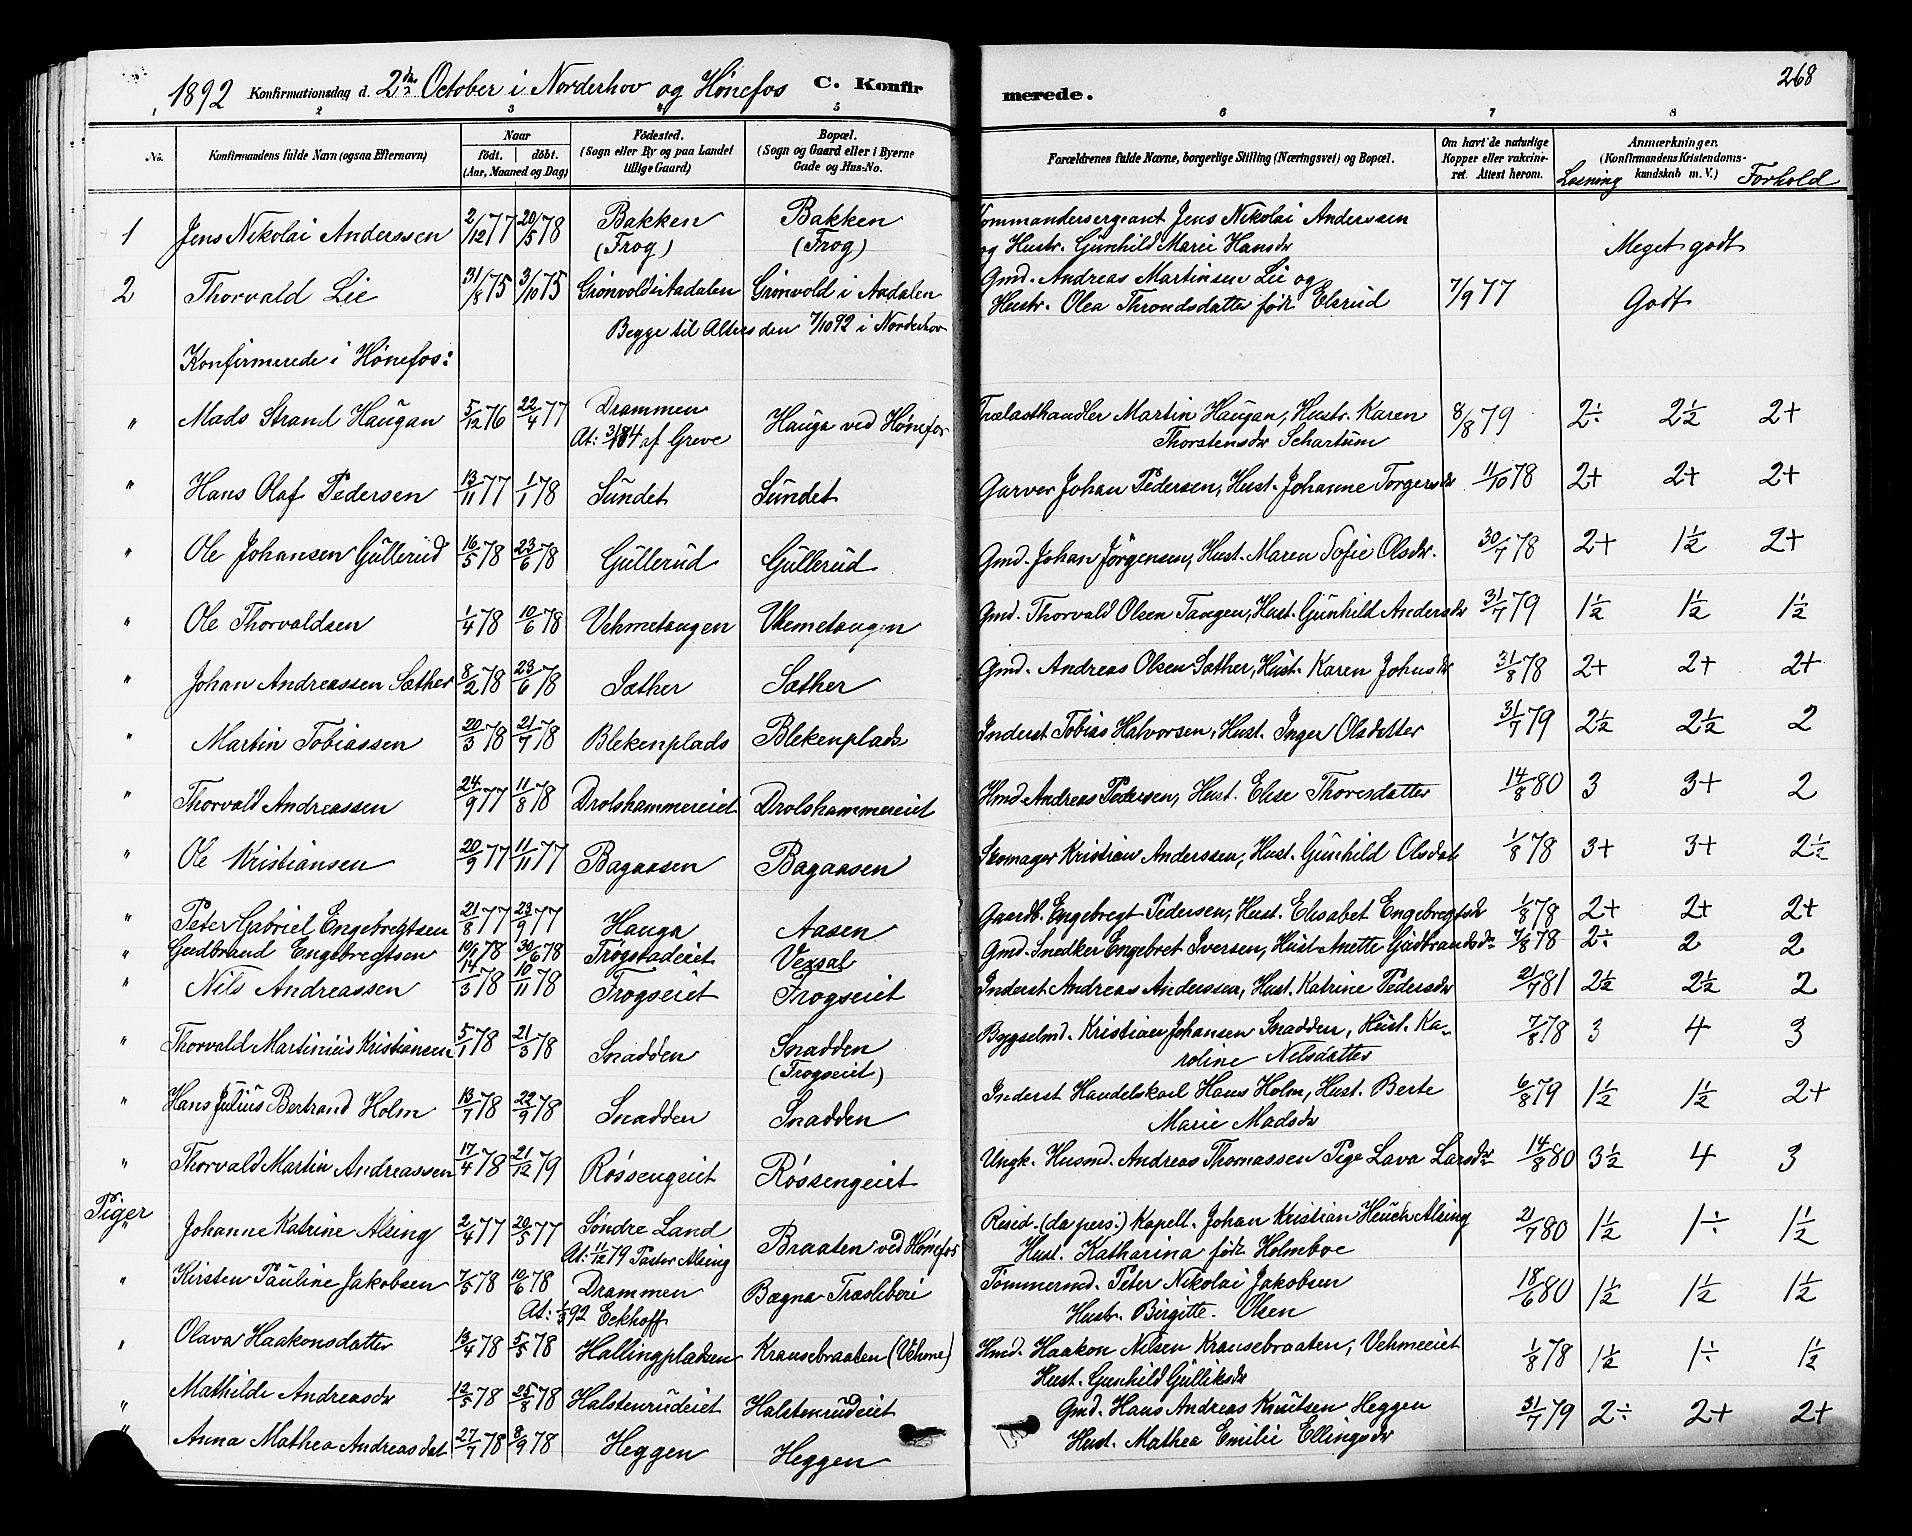 1892 Konfirmationsdag d. 2den October i Norderhov og Hønefos C. Konfirmerede. 268
2 3 4 5 6 7 8
No. Konfirmandens fulde Navn (ogsaa Efternavn) Naar født. døbt. (Aar, Maaned og Dag) Fødested. (Sogn eller By og paa Landet tillige Gaard) Bopæl. (Sogn og Gaard eller i Byerne Gade og Hus-No. Forældrenes fulde Navne, borgerlige Stilling (Næringsvei) og Bopæl. Om havt de naturlige Kopper eller vakcineret. Attest herom. Anmærkninger. (Konfirmandens Kristendomskundskab m. V.) Læsning Forhold
1 Jens Nikolai Anderssen 2/12 77 20/5 78 Bakken (Frog) Bakken (Frog) Kommandersergeant Jens Nikolai Anderssen og Hustr. Gunhild Marie Hansdr Meget godt
2 Thorvald Lie 31/8 75 3/10 75 Grønvold i Aadalen Grønvold i Aadalen Gmd. Andreas Martinsen Lie og Hustr. Olea Throndsdatter født Elsrud 7/9 77 Godt
Begge til Alters den 7/10 92 i Norderhov
Konfirmerede i Hønefos:
" Mads Strand Haugan 5/12 76 22/4 77 Drammen At: af Greve Hauga ved Hønefos Trælasthandler Martin Haugan, Hustr. Karen Thorstensdr Schartum 8/8 79 2÷ 2½ 2+
" Hans Olaf Pedersen 13/11 77 1/1 78 Sundet Sundet Garver Johan Pedersen, Hust. Johanne Torgersdr 11/10 78 2+ 2+ 2+
" Ole Johansen Gullerud 16/5 78 23/6 78 Gullerud Gullerud Gmd. Johan Jörgensen, Hust. Maren Sofie Olsdr. 30/7 78 2+ 1½ 2+
" Ole Thorvaldsen 1/4 78 10/6 78 Vehmetangen Vhemetangen Gmd. Thorvald Olsen Tangen, Hust. Gunhild Andersdr 31/7 79 1½ 1½ 1½
" Johan Andreassen Sæther 8/2 78 23/6 78 Sæther Sæther Gmd. Andreas Olsen Sæther, Hust. Karen Johnsdr 31/8 78 2+ 2+ 2+
" Martin Tobiassen 20/3 78 21/7 78 Blekenplads Blekenplads Inderst Tobias Halvorsen, Hust. Inger Olsdatter 31/7 79 2½ 2½ 2
" Thorvald Andreassen 24/9 77 11/8 78 Drolshammereiet Drolshammereiet Hmd Andreas Pedersen, Hust. Elise Thoresdatter 14/8 80 3 3+ 2
" Ole Kristiansen 20/9 77 11/11 77 Bagaasen Bagaasen Skomager Kristian Anderssen, Hust. Gunhild Olsdat 1/8 78 3+ 3+ 2½
" Peter Gabriel Engebregtsen 21/8 77 23/9 77 Hauga Aasen Gaardb. Engebregt Pedersen, Hust. Elisabet Engebregtsdr 1/8 78 2+ 2+ 2+
" Gudbrand Engebregtsen 10/1 78 30/6 78 Trøgstadeiet Vexsal Gmd. Snedker Engebret Iversen, Hust Anette Gudbrandsdr 7/8 78 2÷ 2 2
" Nils Andreassen 14/3 78 10/11 78 Frogseiet Frogseiet Inderst Andreas Anderssen, Hust. Katrine Pedersdr 21/7 81 2½ 2½ 2
" Thorvald Martinius Kristiansen 5/1 78 21/3 78 Snadden Snadden (Frogseiet) Bygselmd. Kristian Johansen Snadden, Hust. Karoline Nilsdatter 7/8 78 3 4 3
" Hans Julius Bertrand Holm 13/7 78 22/9 78 Snadden Snadden Inderst Handelskarl Hans Holm, Hust. Berte Marie Madsdr 6/8 79 1½ 1½ 2+
" Thorvald Martin Andreassen 17/4 78 21/12 79 Røssengeiet Røssengeiet Ungk. Husmd. Andreas Thomassen Pige Lava Larsdr 14/8 80 3½ 4 3
Piger
" Johanne Katrine Alsing 2/4 77 20/5 77 Søndre Land At: 11/12 79 Pastor Alsing Braaten ved Hønefos Resid. (da pers.) Kapell. Johan Kristian Heuch Alsing Hust. Katharina født Holmboe 21/7 80 1½ 1÷ 1½
" Kirsten Pauline Jakobsen 7/5 78 10/6 78 Drammen At: 92 Eckhoff Bægna Træsliberi Tømmermd. Peter Nikolai Jakobsen Hustr. Birgitte. Olsen 18/6 80 1½ 1½ 1½
" Olava Haakonsdatter 13/4 78 5/5 78 Hallingpladsen Krausebraaten (Vehme) Hmd. Haakon Nilsen Krausebraaten, Vehmeeiet Hust. Gunhild Gulliksdr 1/8 78 1½ 1÷ 1½
" Mathilde Andreasdr 12/5 78 25/8 78 Halstenrudeiet Halstenrudeiet
" Anna Mathea Andreasdat 27/7 78 8/9 78 Heggen Heggen Gmd. Hans Andreas Knutsen Heggen Hust. Mathea Emilie Ellingsdr 31/7 79 2÷ 2+ 2+